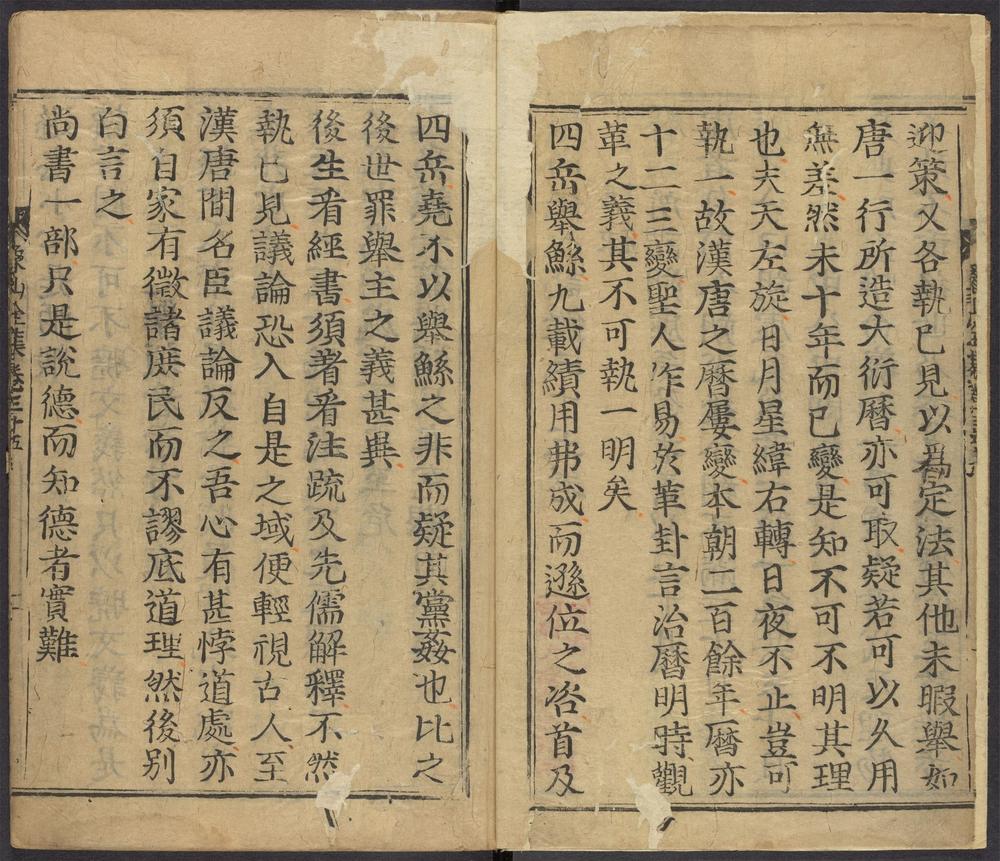 迎策又各執己見以爲定法其他未暇舉如
唐一行所造大衍曆亦可取疑若可以久用
無差然未十年而已變是知不可不明其理
也夫天左旋日月星緯右轉日夜不止豈可
執一故漢唐之曆屢變本朝二百餘年曆亦
十二三變聖人作易於革卦言治曆明時觀
革之義其不可執一明矣
四岳舉鯀九載績用弗成而遜位之咨首及
四岳堯不以舉鯀之非而疑其黨姦也比之
後世罪舉主之義甚異
後生看經書須著看注疏及先儒解釋不然
執己見議論恐入自是之域便輕視古人至
漢唐間名臣議論反之吾心有甚悖道處亦
須自家有徵諸庶民而不謬底道理然後別
白言之
尚書一部只是說德而知德者實難
象山全集卷三十五